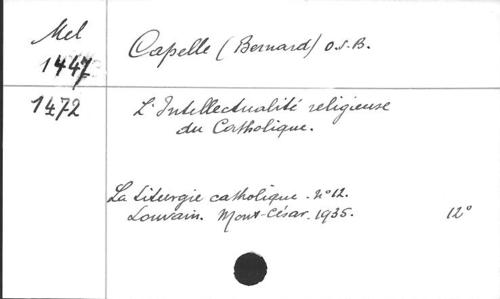 Mel
1447
Capelle (Bernard) O.S.B.
1472
L'Intellectualité religieuse
du Catholique.
La Liturgie catholique. N° 12.
Louvain. Mont-César. 1935.
12°